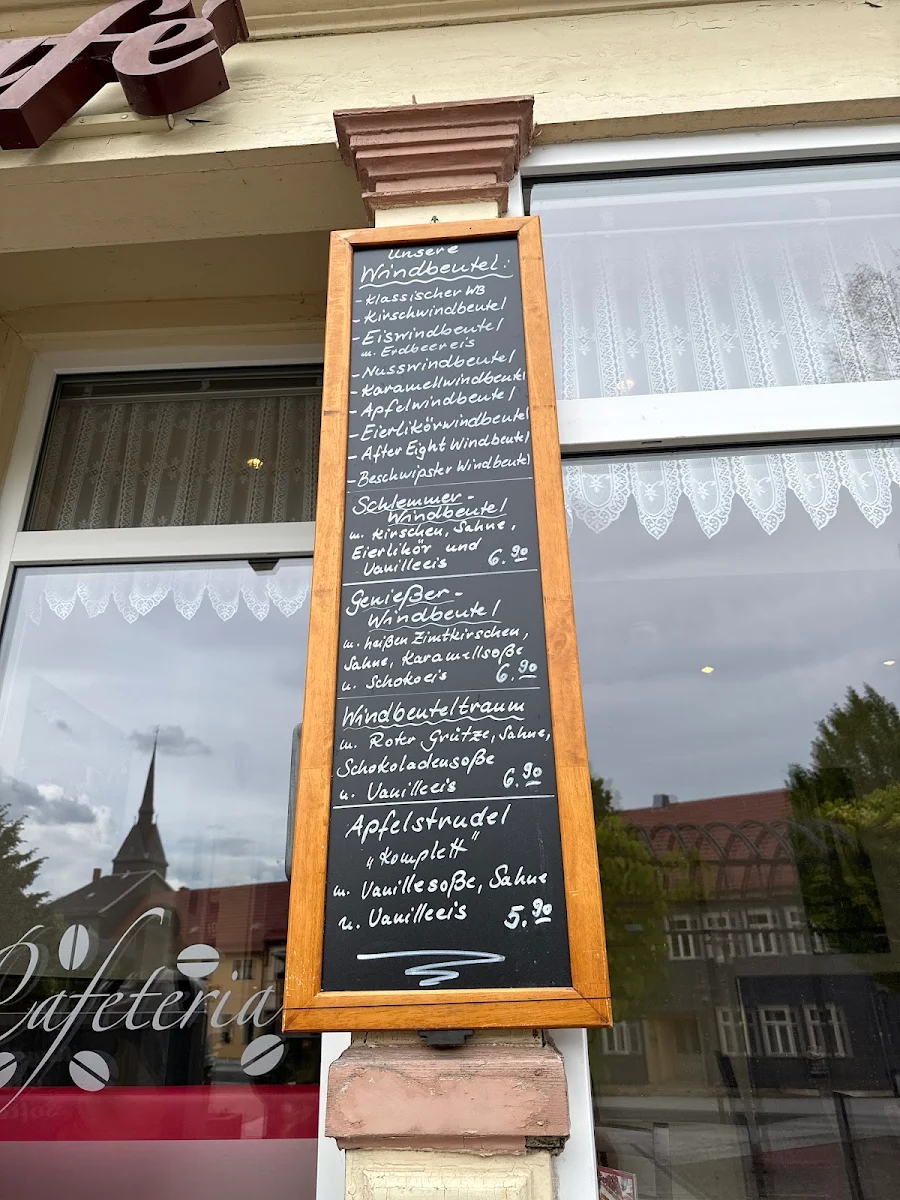 afé
Unsere
Windbeutel:
- Klassischer WB
- Kirschwindbeutel
- Eiswindbeutel
m. Erdbeereis
- Nusswindbeutel
- Karamellwindbeutel
- Apfelwindbeutel
- Eierlikörwindbeutel
- After Eight Windbeutel
- Beschwipster Windbeutel
Schlemmer-
Windbeutel
m. Kirschen, Sahne,
Eierlikör und
Vanilleeis 6.90
Genießer-
Windbeutel
m. heißen Zimtkirschen,
Sahne, Karamellsoße
u. Schokoeis 6.90
Windbeuteltraum
m. Roter Grütze, Sahne,
Schokoladensoße
u. Vanilleeis 6.90
Apfelstrudel
„Komplett"
m. Vanillesoße, Sahne
u. Vanilleeis 5.90
Cafeteria